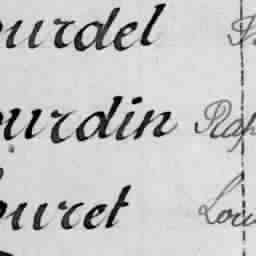 ourdel
ourdin Rap
ouret Lou